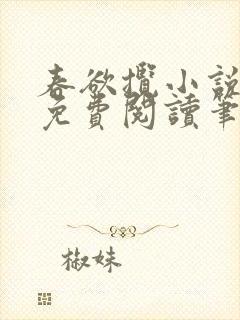 春欲攬小說
免費閱讀筆
椒妹